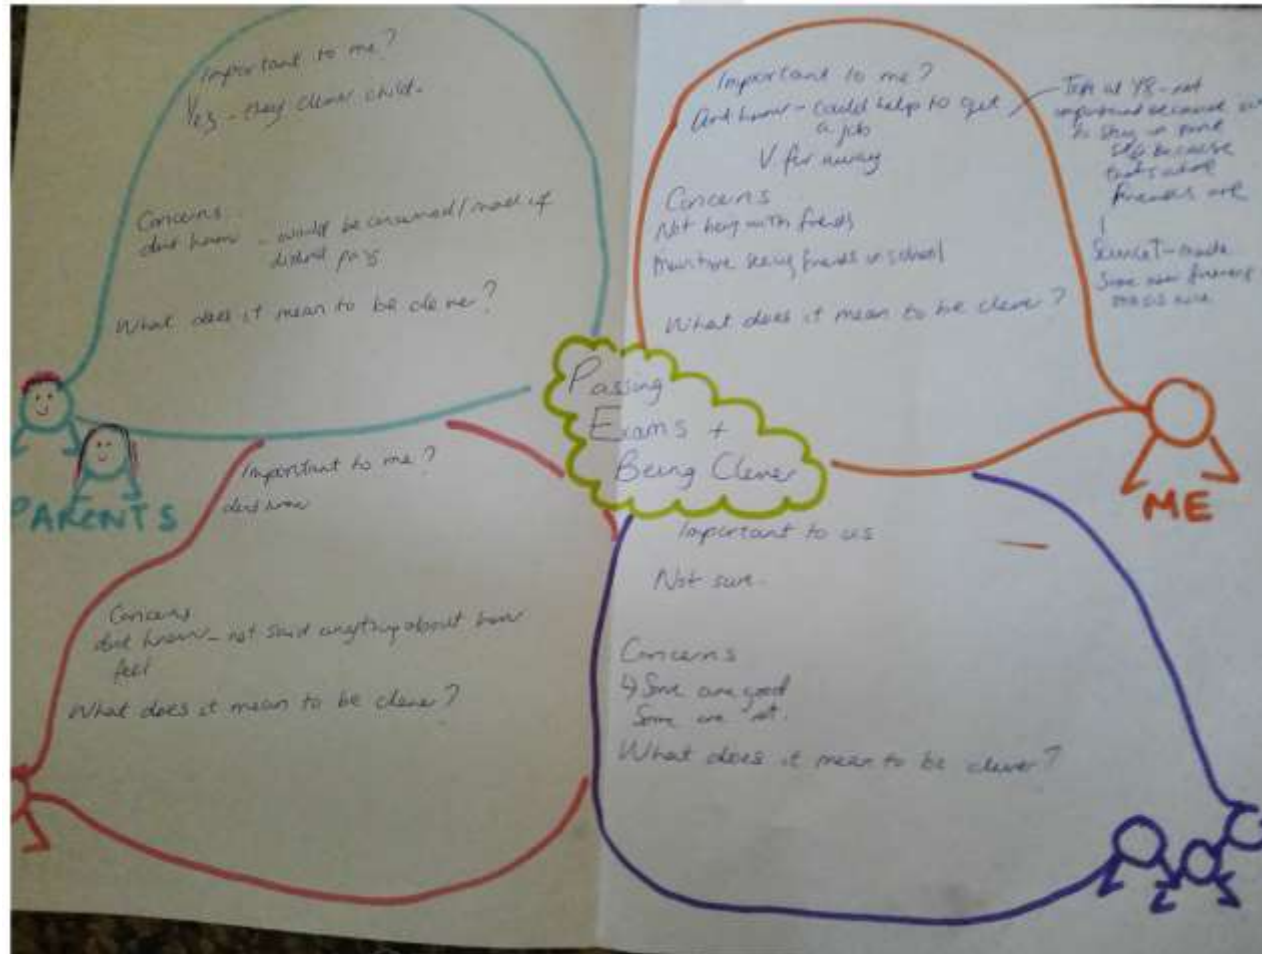 Important to me?
Yes - they clever child.
Concerns
dont know - would be concerned/mad if
didnt pass
What does it mean to be clever?
PARENTS
Important to me?
dont know - could help to get
a job
V far away
Concerns
Not being with friends
seeing friends in school
What does it mean to be clever?
Test at Y8 - not
important because
to stay in same
because
thats where
friends are
made
some new friends
ME
Passing
Exams +
Being Clever
Important to me?
dont know
Concerns
dont know - not said anything about how
feel
What does it mean to be clever?
Important to us
Not sure.
Concerns
↳ Some are good
Some are not.
What does it mean to be clever?